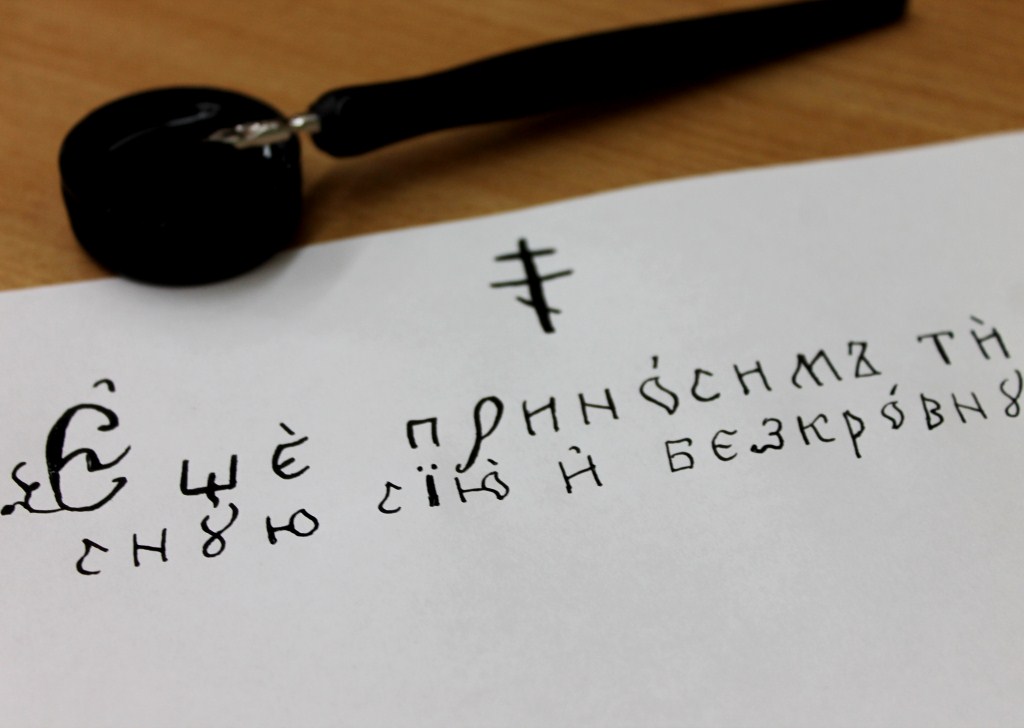 Є҆щѐ прино́симъ тѝ
снꙋю сїю̀ и҆ безкро́внꙋ